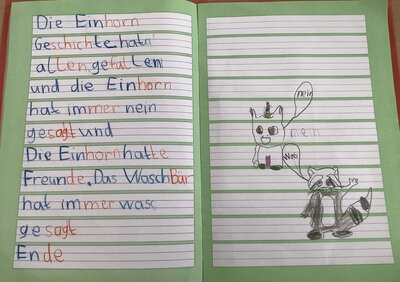 Die Einhorn
Geschichte hata
allen gefallen
und die Einhorn
hat immer nein
gesagt und
Die Einhorn hatte
Freunde. Das Waschbär
hat immer was
gesagt
Ende
nein
nein
Was